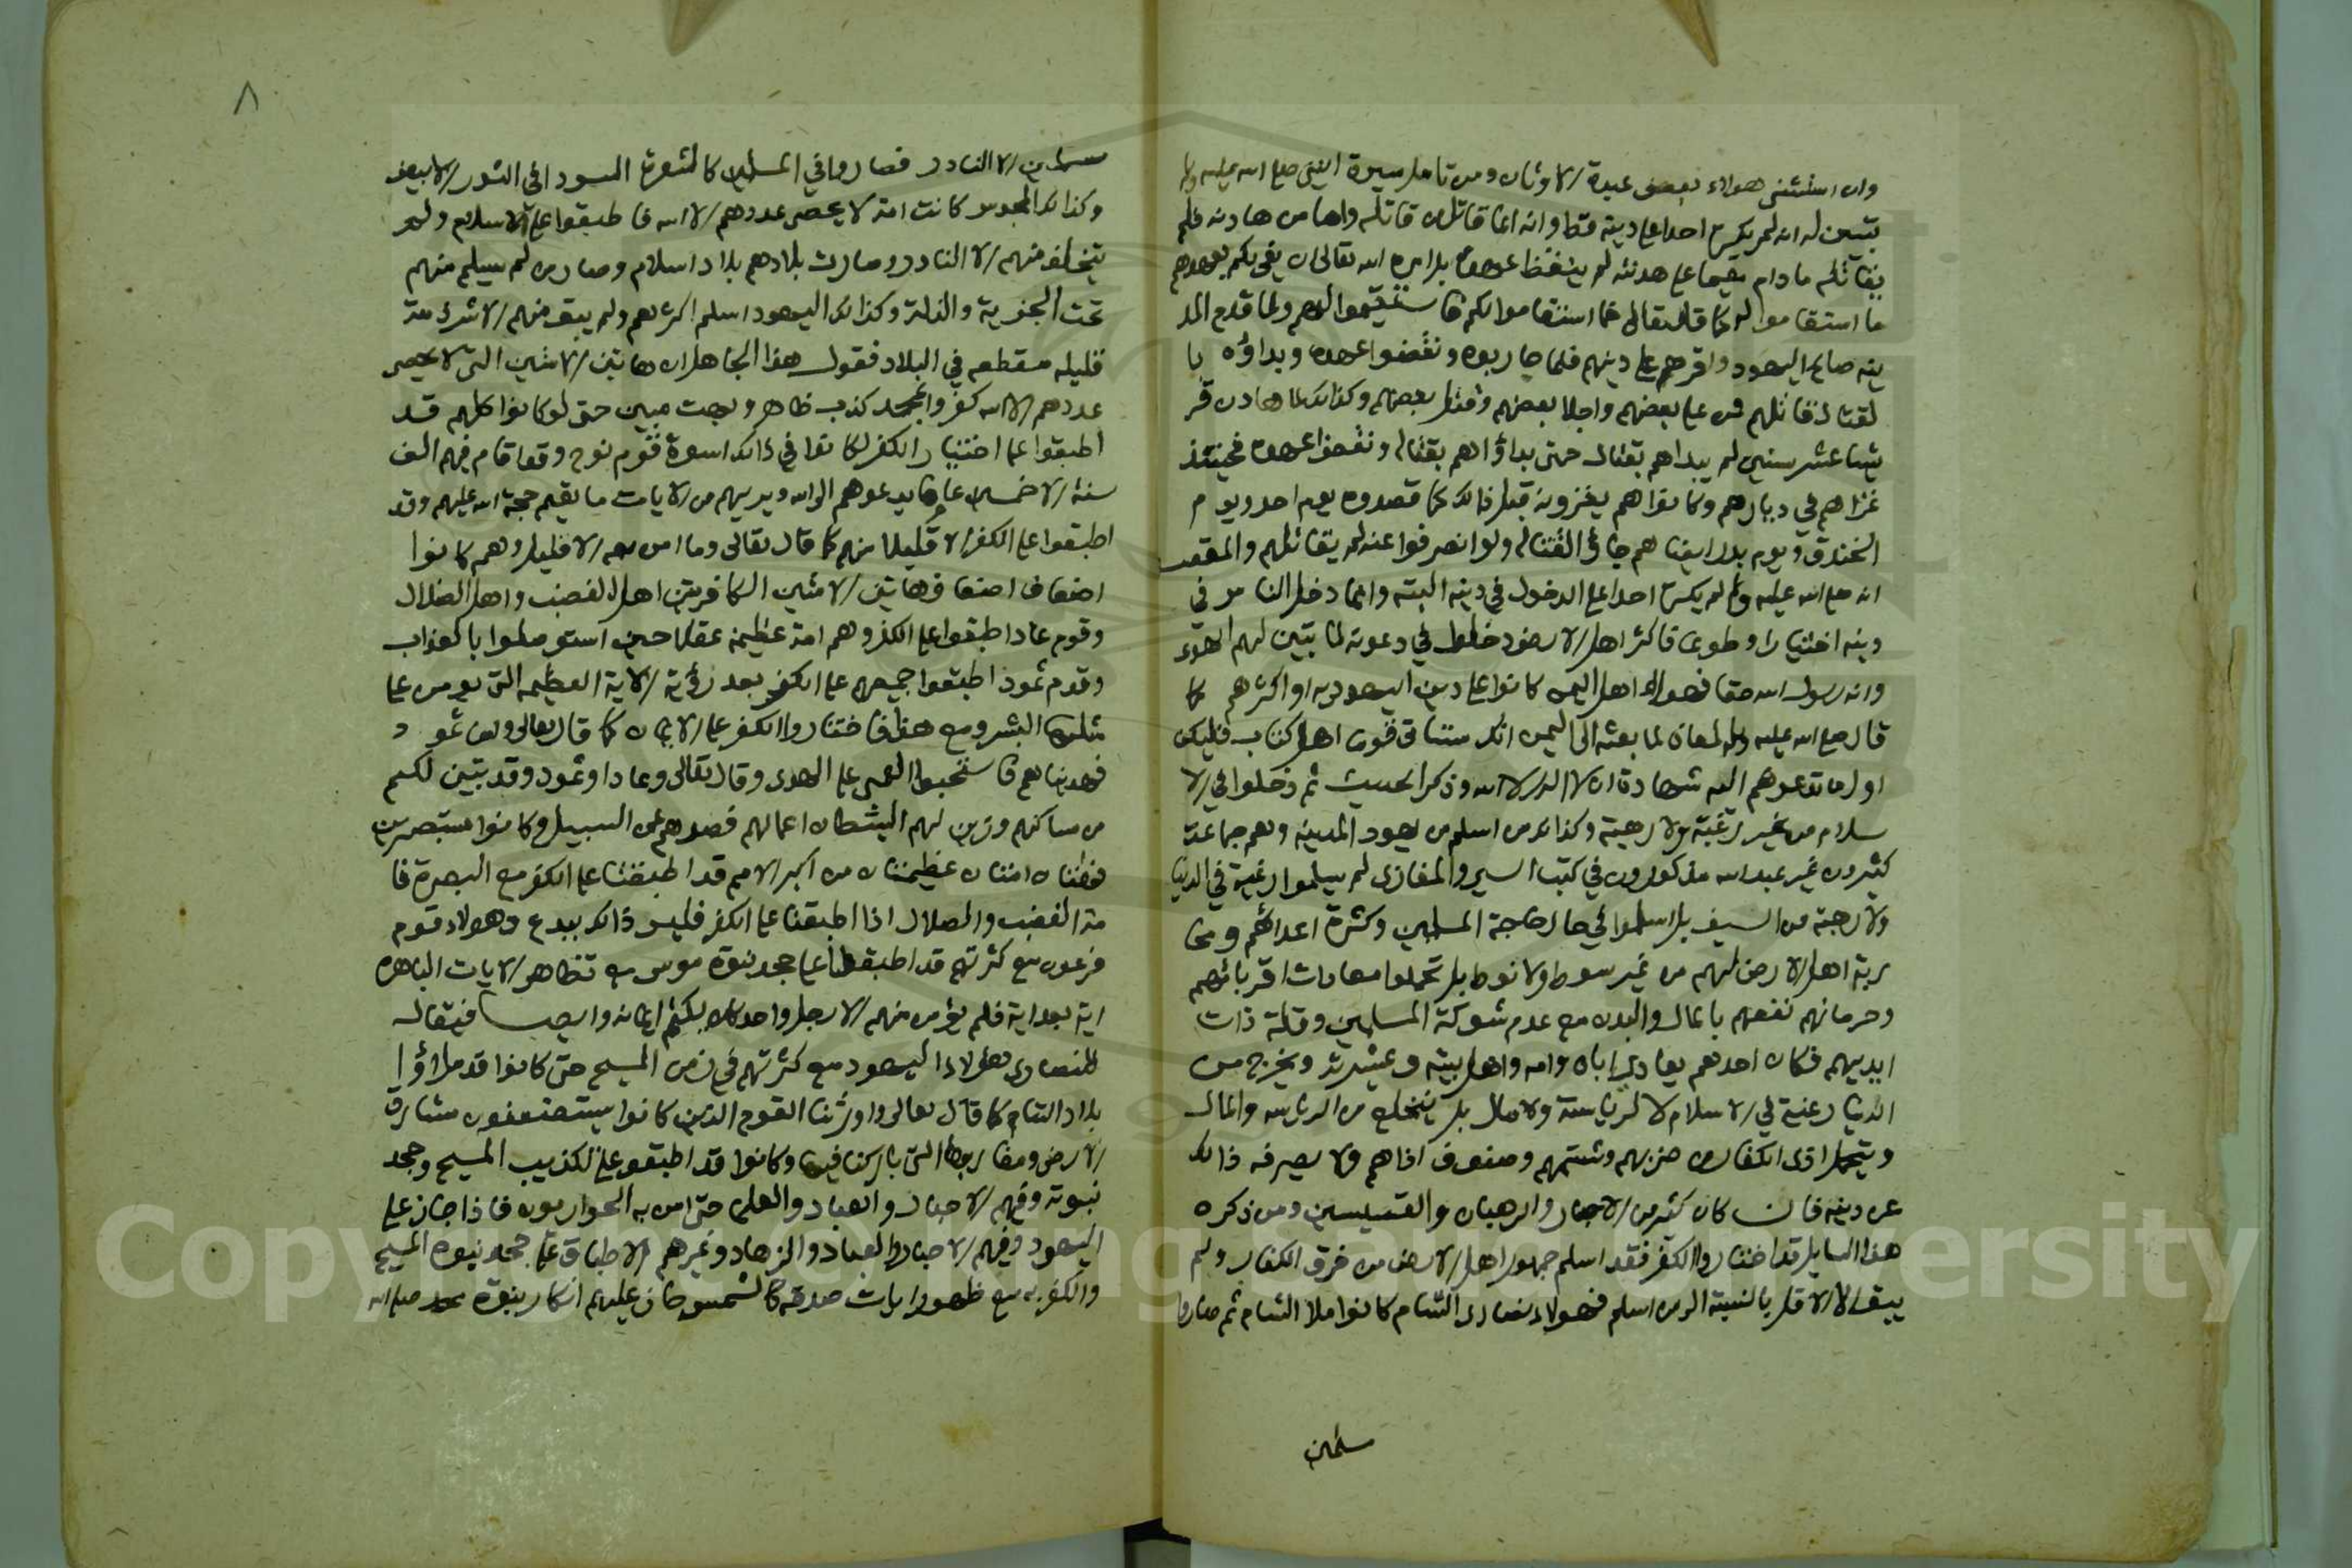 وان استثنى هولاء بعض عبدة الاوثان ومن تامل سيرة النبي صلى الله عليه وسلم
تبين له انه لم يكره احدا على دينه قط وانه انما قاتل من قاتله واما من هادنه فلم
يقاتله ما دام مقيما على هدنته لم ينقض عهده بل امره الله تعالى ان يفي لهم بعهدهم
ما استقاموا له كما قال تعالى فما استقاموا لكم فاستقيموا لهم ولما قدم المد
ينه صالح اليهود واقرهم على دينهم فلما حاربوه ونقضوا عهده وبداؤه با
لقتال قاتلهم فمن على بعضهم واجلا بعضهم وقتل بعضهم وكذالك لما هادن قر
يشا عشر سنين لم يبداهم بقتال حتى بداؤا هم بقتاله ونقضوا عهده فحينئذ
غزاهم في ديارهم وكانوا هم يغزونه قبل ذالك كما قصدوه يوم احد ويوم
الخندق ويوم بدر ايضا هم جاؤا لقتاله ولو انصرفوا عنه لم يقاتلهم والمقصود
انه صلى الله عليه وسلم لم يكره احدا على الدخول في دينه البته وانما دخل الناس في
دينه اختيارا وطوعا فاكثر اهل الارض دخلوا في دعوته لما تبين لهم الهدى
وانه رسول الله حقا فهولاء اهل اليمن كانوا على دين اليهوديه او اكثرهم كما
قال صلى الله عليه وسلم لمعاذ لما بعثه الى اليمن انك ستاتي قوما اهل كتاب فليكن
اول ما تدعوهم اليه شهادة ان لا اله الا الله وذكر الحديث ثم دخلوا في الا
سلام من غير رغبة ولا رهبة وكذالك من اسلم من يهود المدينه وهم جماعة
كثيرون غير عبد الله مذكورون في كتب السير والمغازي لم يسلموا رغبة في الدنيا
ولا رهبة من السيف بل اسلموا في حال حاجة المسلمين وكثرة اعدائهم ومحا
ربة اهل الارض لهم من غير سوط ولا نوط بل تحملوا معادات اقربائهم
وحرمانهم نفعهم بالمال والبدن مع عدم شوكة المسلمين وقلة ذات
ايديهم فكان احدهم يعادي اباه وامه واهل بيته وعشيرته ويخرج من
الدنيا رغبة في الاسلام لا لرياسة ولا مال بل ينخلع من الرياسه والمال
ويتحمل اذى الكفار من ضربهم وشتمهم وصنوف اذاهم ولا يصرفه ذالك
عن دينه فان كان كثير من الاحبار والرهبان والقسيسين ومن ذكره
هذا السايل قد اختاروا الكفر فقد اسلم جمهور اهل الارض من فرق الكفار ولم
يبق الا الاقل بالنسبة الى من اسلم فهولاء نصارى الشام كانوا ملا الشام ثم صاروا
سلمين
٨
سلمين الا النادر فصاروا في المسلمين كالشعرة السودا في الثور الابيض
وكذالك المجوس كانت امة لا يحصي عددهم الا الله فاطبقوا على الاسلام ولم
يتخلف منهم الا النادر وصارت بلادهم بلاد اسلام وصار من لم يسلم منهم
تحت الجزية والذلة وكذالك اليهود اسلم اكثرهم ولم يبق منهم الا شرذمة
قليله مقطعه في البلاد فقول هذا الجاهل ان هاتين الامتين التي لا يحصي
عددهم الا الله كفروا بمحمد كذب ظاهر وبهت مبين حتى لو كانوا كلهم قد
اطبقوا على اختيار الكفر لكانوا في ذالك اسوة قوم نوح وقد اقام فيهم الف
سنة الا خمسين عاما يدعوهم الى الله ويريهم من الايات ما يقيم حجة الله عليهم وقد
اطبقوا على الكفر الا قليلا منهم كما قال تعالى وما امن معه الا قليل وهم كانوا
اضعاف اضعاف هاتين الامتين الكافرتين اهل الغضب واهل الضلال
وقوم عاد اطبقوا على الكفر وهم امة عظيمة عقلا حتى استوصلوا بالعذاب
وقوم ثمود اطبقوا جميعهم على الكفر بعد رؤية الاية العظيمه التي يومن على
مثلها البشر ومع هذا فاختاروا الكفر على الايمان كما قال تعالى واما ثمود
فهديناهم فاستحبوا العمى على الهدى وقال تعالى وعادا وثمود وقد تبين لكم
من مساكنهم وزين لهم الشيطان اعمالهم فصدهم عن السبيل وكانوا مستبصرين
فهاتان امتان عظيمتان من اكبر الامم قد اطبقتا على الكفر مع البصرة فا
مة الغضب والضلال اذا اطبقتا على الكفر فليس ذالك ببدع وهولاء قوم
فرعون مع كثرتهم قد اطبقوا على جحد نبوة موسى مع تظاهر الايات الباهره
اية بعد اية فلم يؤمن منهم الا رجل واحد كان يكتم ايمانه وايضا فيقال
للنصارى هؤلاء اليهود مع كثرتهم في زمن المسيح حتى كانوا قد ملاؤا
بلاد الشام كما قال تعالى واورثنا القوم الذين كانوا يستضعفون مشارق
الارض ومغاربها التي باركنا فيها وكانوا قد اطبقوا على تكذيب المسيح وجحد
نبوته وفيهم الاحبار والعباد والعلما حتى امن به الحواريون فاذا جاز على
اليهود وفيهم الاحبار والعباد والزهاد وغيرهم الاطباق على جحد نبوة المسيح
والكفر به مع ظهور ايات صدقه كالشمس جاز عليهم انكار نبوة محمد صلى الله